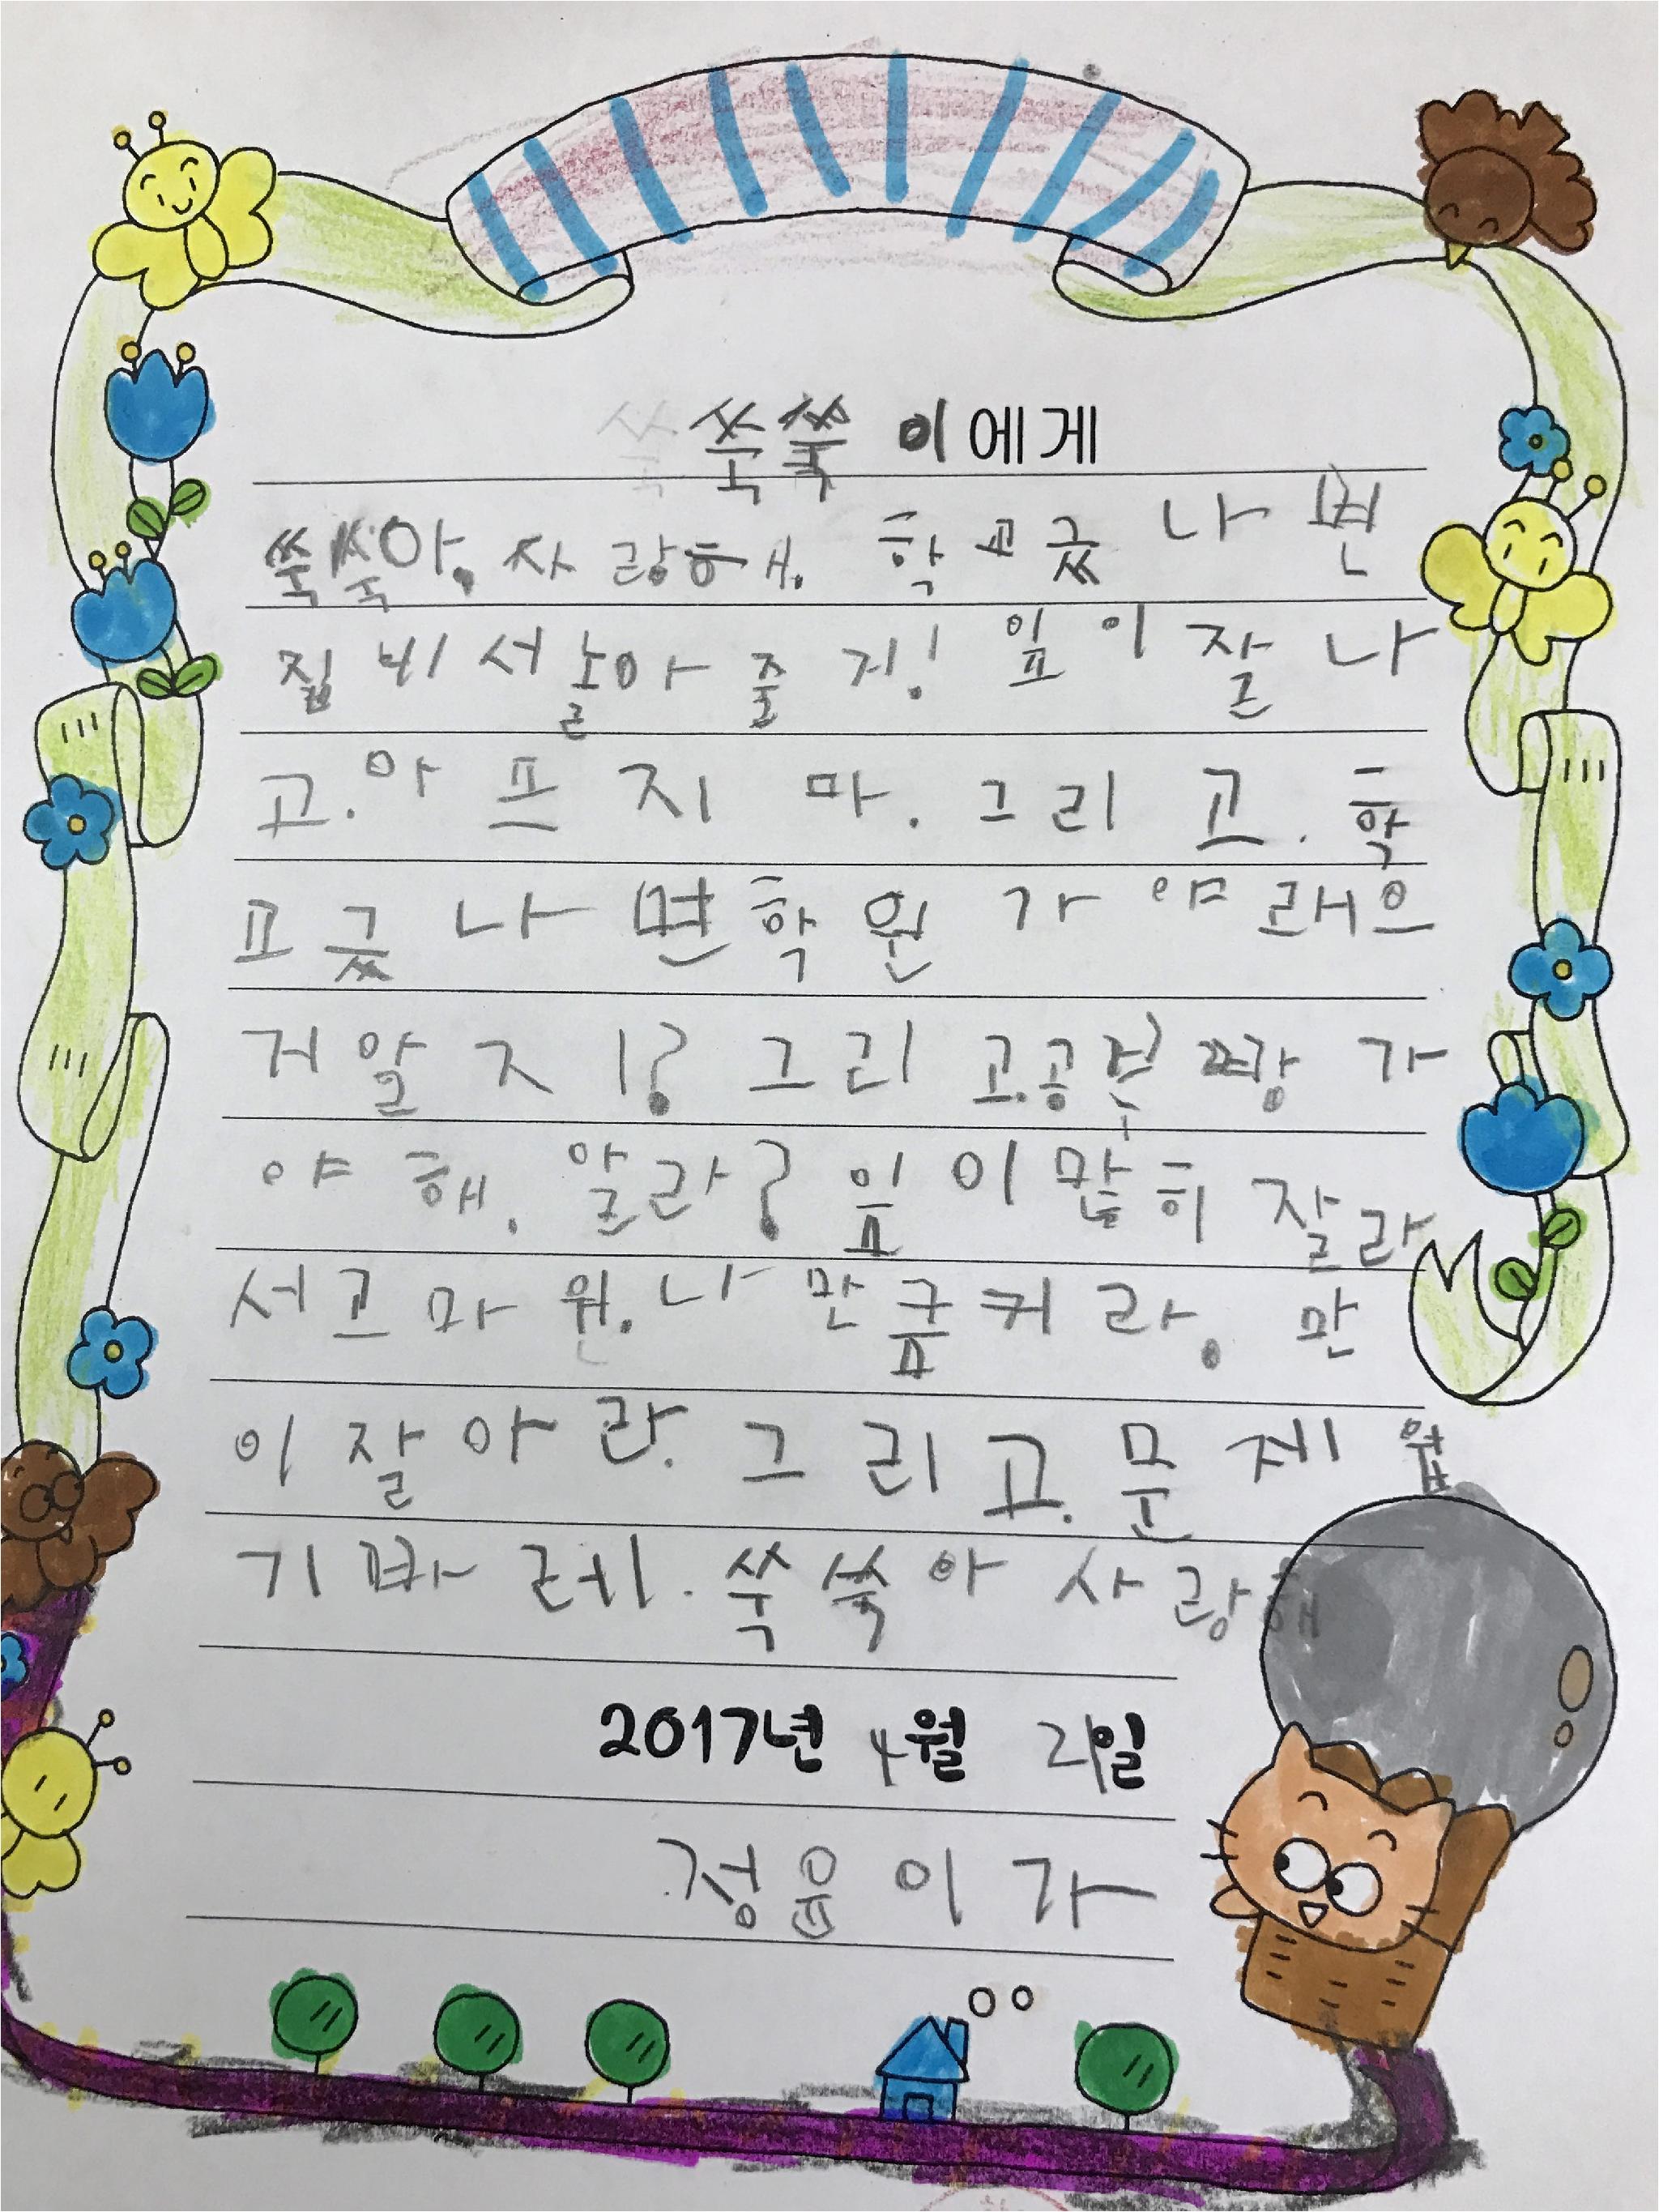 쑥쑥 이에게
쑥쑥아. 사랑해. 학교긌나면
집비서놀아줄지! 잎이잘나
고. 아프지마. 그리고. 학
교긌나면학원가야되으
거알지? 그리고.공원짱가
야해. 알라? 잎이많히잘라
서고마원. 나만큼커라. 만
이잘아라. 그리고. 문제읍
기빠레. 쑥쑥아사랑해
2017년 4월 21일
정윤이가